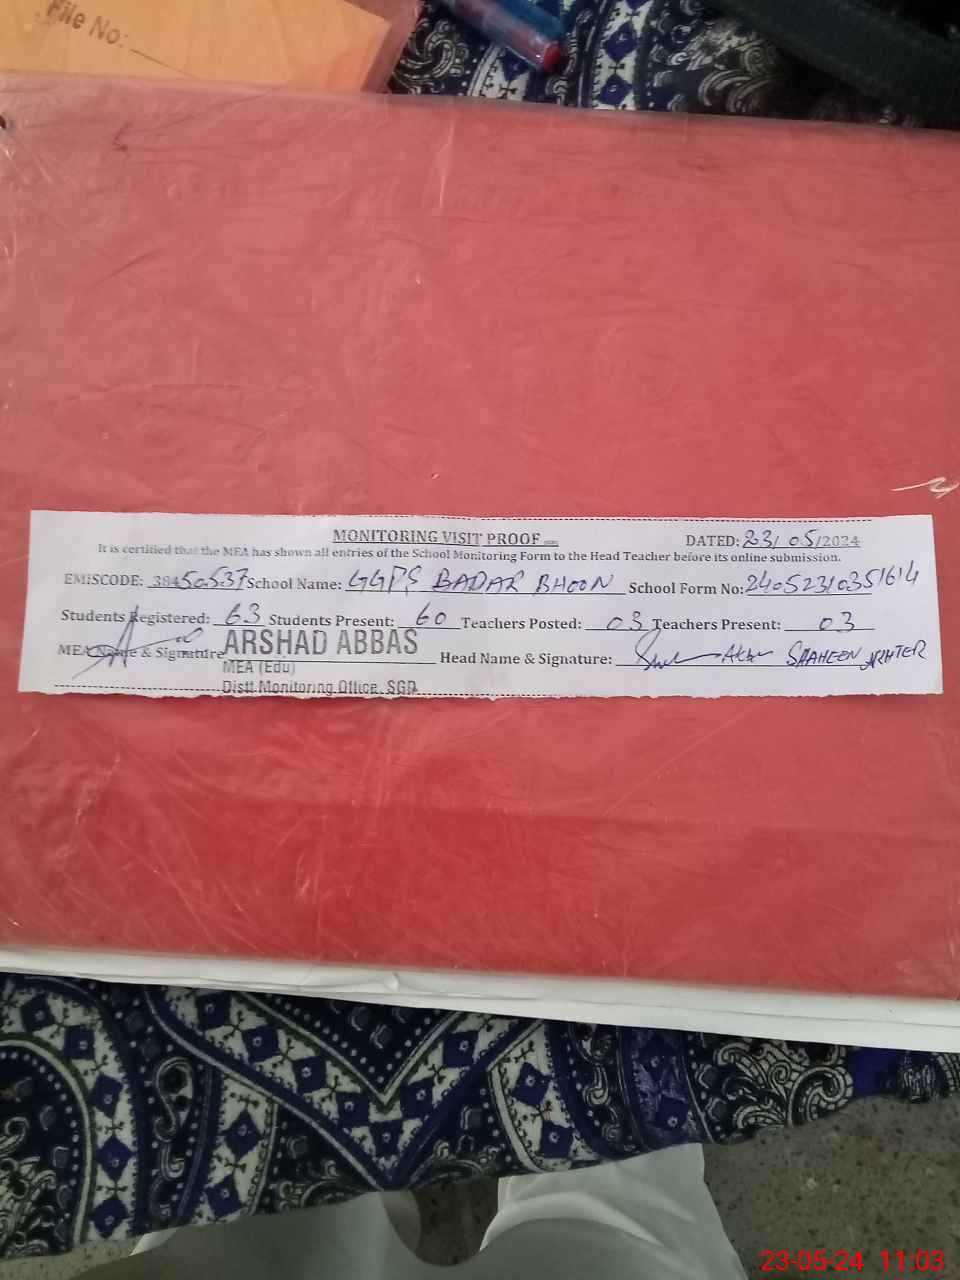 File No:
MONITORING VISIT PROOF
DATED: 23/05/2024
It is certified that the MEA has shown all entries of the School Monitoring Form to the Head Teacher before its online submission.
EMISCODE: 38450537 School Name: GGPS BADAR BHOON School Form No: 24052310351614
Students Registered: 63 Students Present: 60 Teachers Posted: 03 Teachers Present: 03
MEA Name & Signature ARSHAD ABBAS Head Name & Signature: SHAHEEN AKHTER
MEA (Edu)
Distt Monitoring Office, SGD
23-05-24 11:03